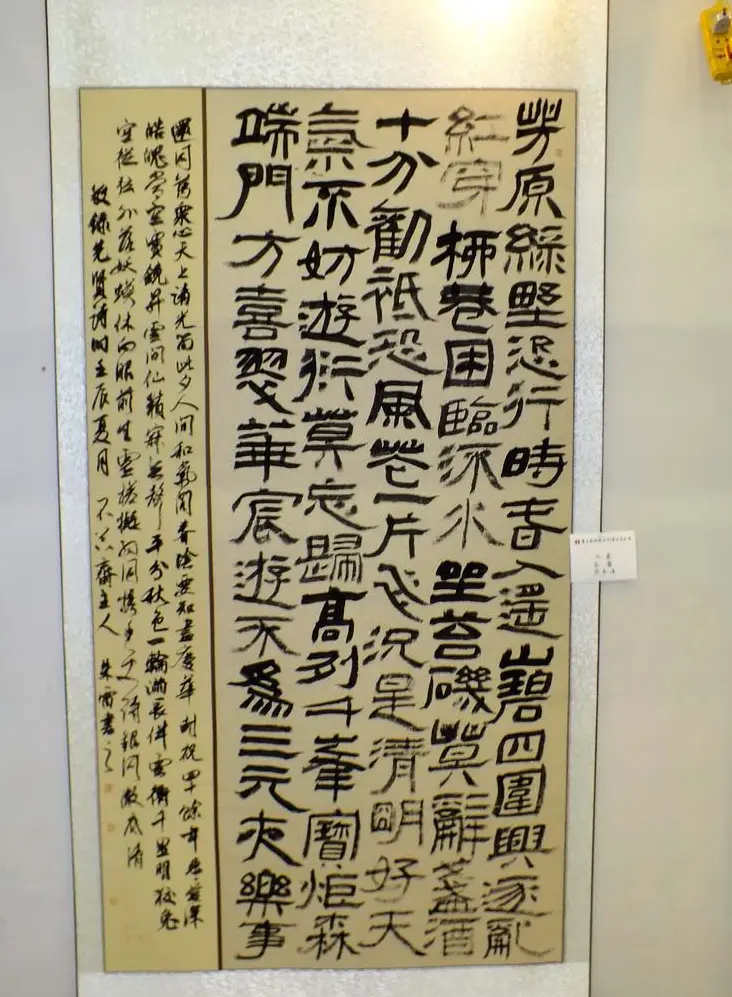 芳原綠野恣行時春入遥山碧四圍興逐亂
紅穿柳巷困臨流水坐苔磯莫辭盞酒
十分勸祇恐風花一片飛況是清明好天
氣不妨遊衍莫忘歸高列千峯寶炬森
端門方喜翠華宸遊不爲三元夜樂事
還同萬衆心天上清光留此夕人間和氣閣春陰要知盡慶華封祝四十餘年惠愛深
皓魄當空寶鏡昇雲間仙籟寂無聲平分秋色一輪滿長伴雲衢千里明狡兔
空從弦外落妖蟆休向眼前生靈槎擬約同攜手更待銀河徹底清
敬錄先賢詩時壬辰夏月 不 齋主人 朱雷書之